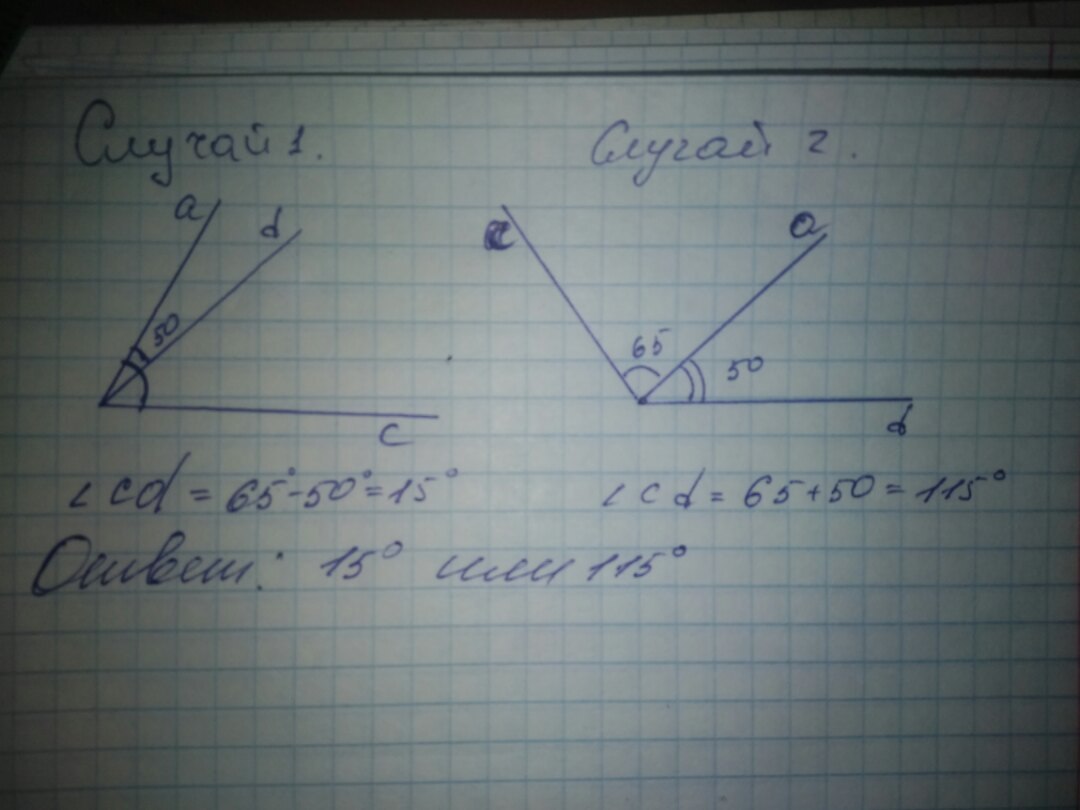 Случай 1.
Случай 2.
a
d
50
c
c
a
65
50
d
∠cd = 65°-50°=15°
∠cd = 65+50=115°
Ответ: 15° или 115°